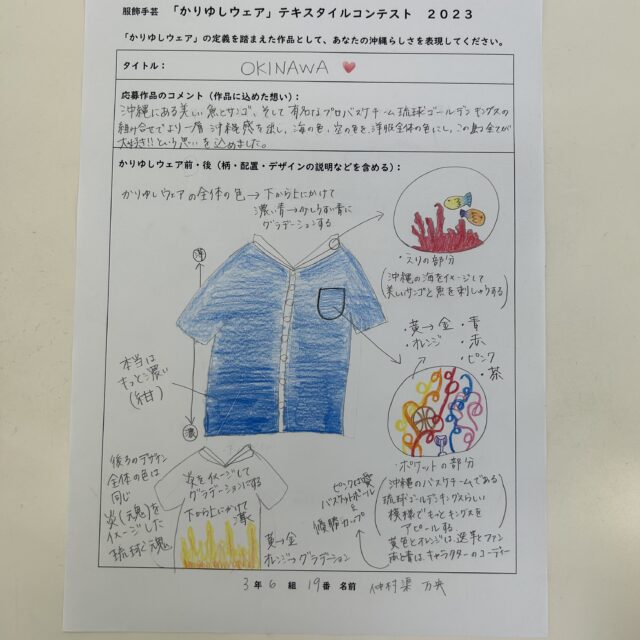 服飾手芸 「かりゆしウェア」テキスタイルコンテスト 2023
「かりゆしウェア」の定義を踏まえた作品として、あなたの沖縄らしさを表現してください。
タイトル： OKINAWA
応募作品のコメント（作品に込めた想い）：
沖縄にある美しい魚とサンゴ、そして有名なプロバスケチーム琉球ゴールデンキングスの
組み合せでより一層 沖縄感を出し、海の色、空の色を洋服全体の色にし、この島の全てが
大好き!!という思いを込めました。
かりゆしウェア前・後（柄・配置・デザインの説明などを含める）：
かりゆしウェアの全体の色→下から上にかけて
濃い青→少しうすい青に
グラデーションする
薄
濃
・えりの部分
(沖縄の海をイメージして
美しいサンゴと魚を刺しゅうする)
・黄→金 ・青
・オレンジ ・赤
・ピンク
・茶
本当は
もっと濃い
(紺)
・ポケットの部分
(沖縄のバスケチームである
琉球ゴールデンキングスらしい
模様でもっとキングスを
アピールする
黄色とオレンジは選手とファン
赤と青はキャラクターのコーディー)
ピンクは愛
バスケットボール
優勝カップ
後ろのデザイン
全体の色は
同じ
炎(魂)を
イメージした
琉球魂
炎をイメージして
グラデーションにする
下から上にかけて
薄く
黄→金
オレンジっグラデーション
3 年 6 組 19番 名前 仲村渠